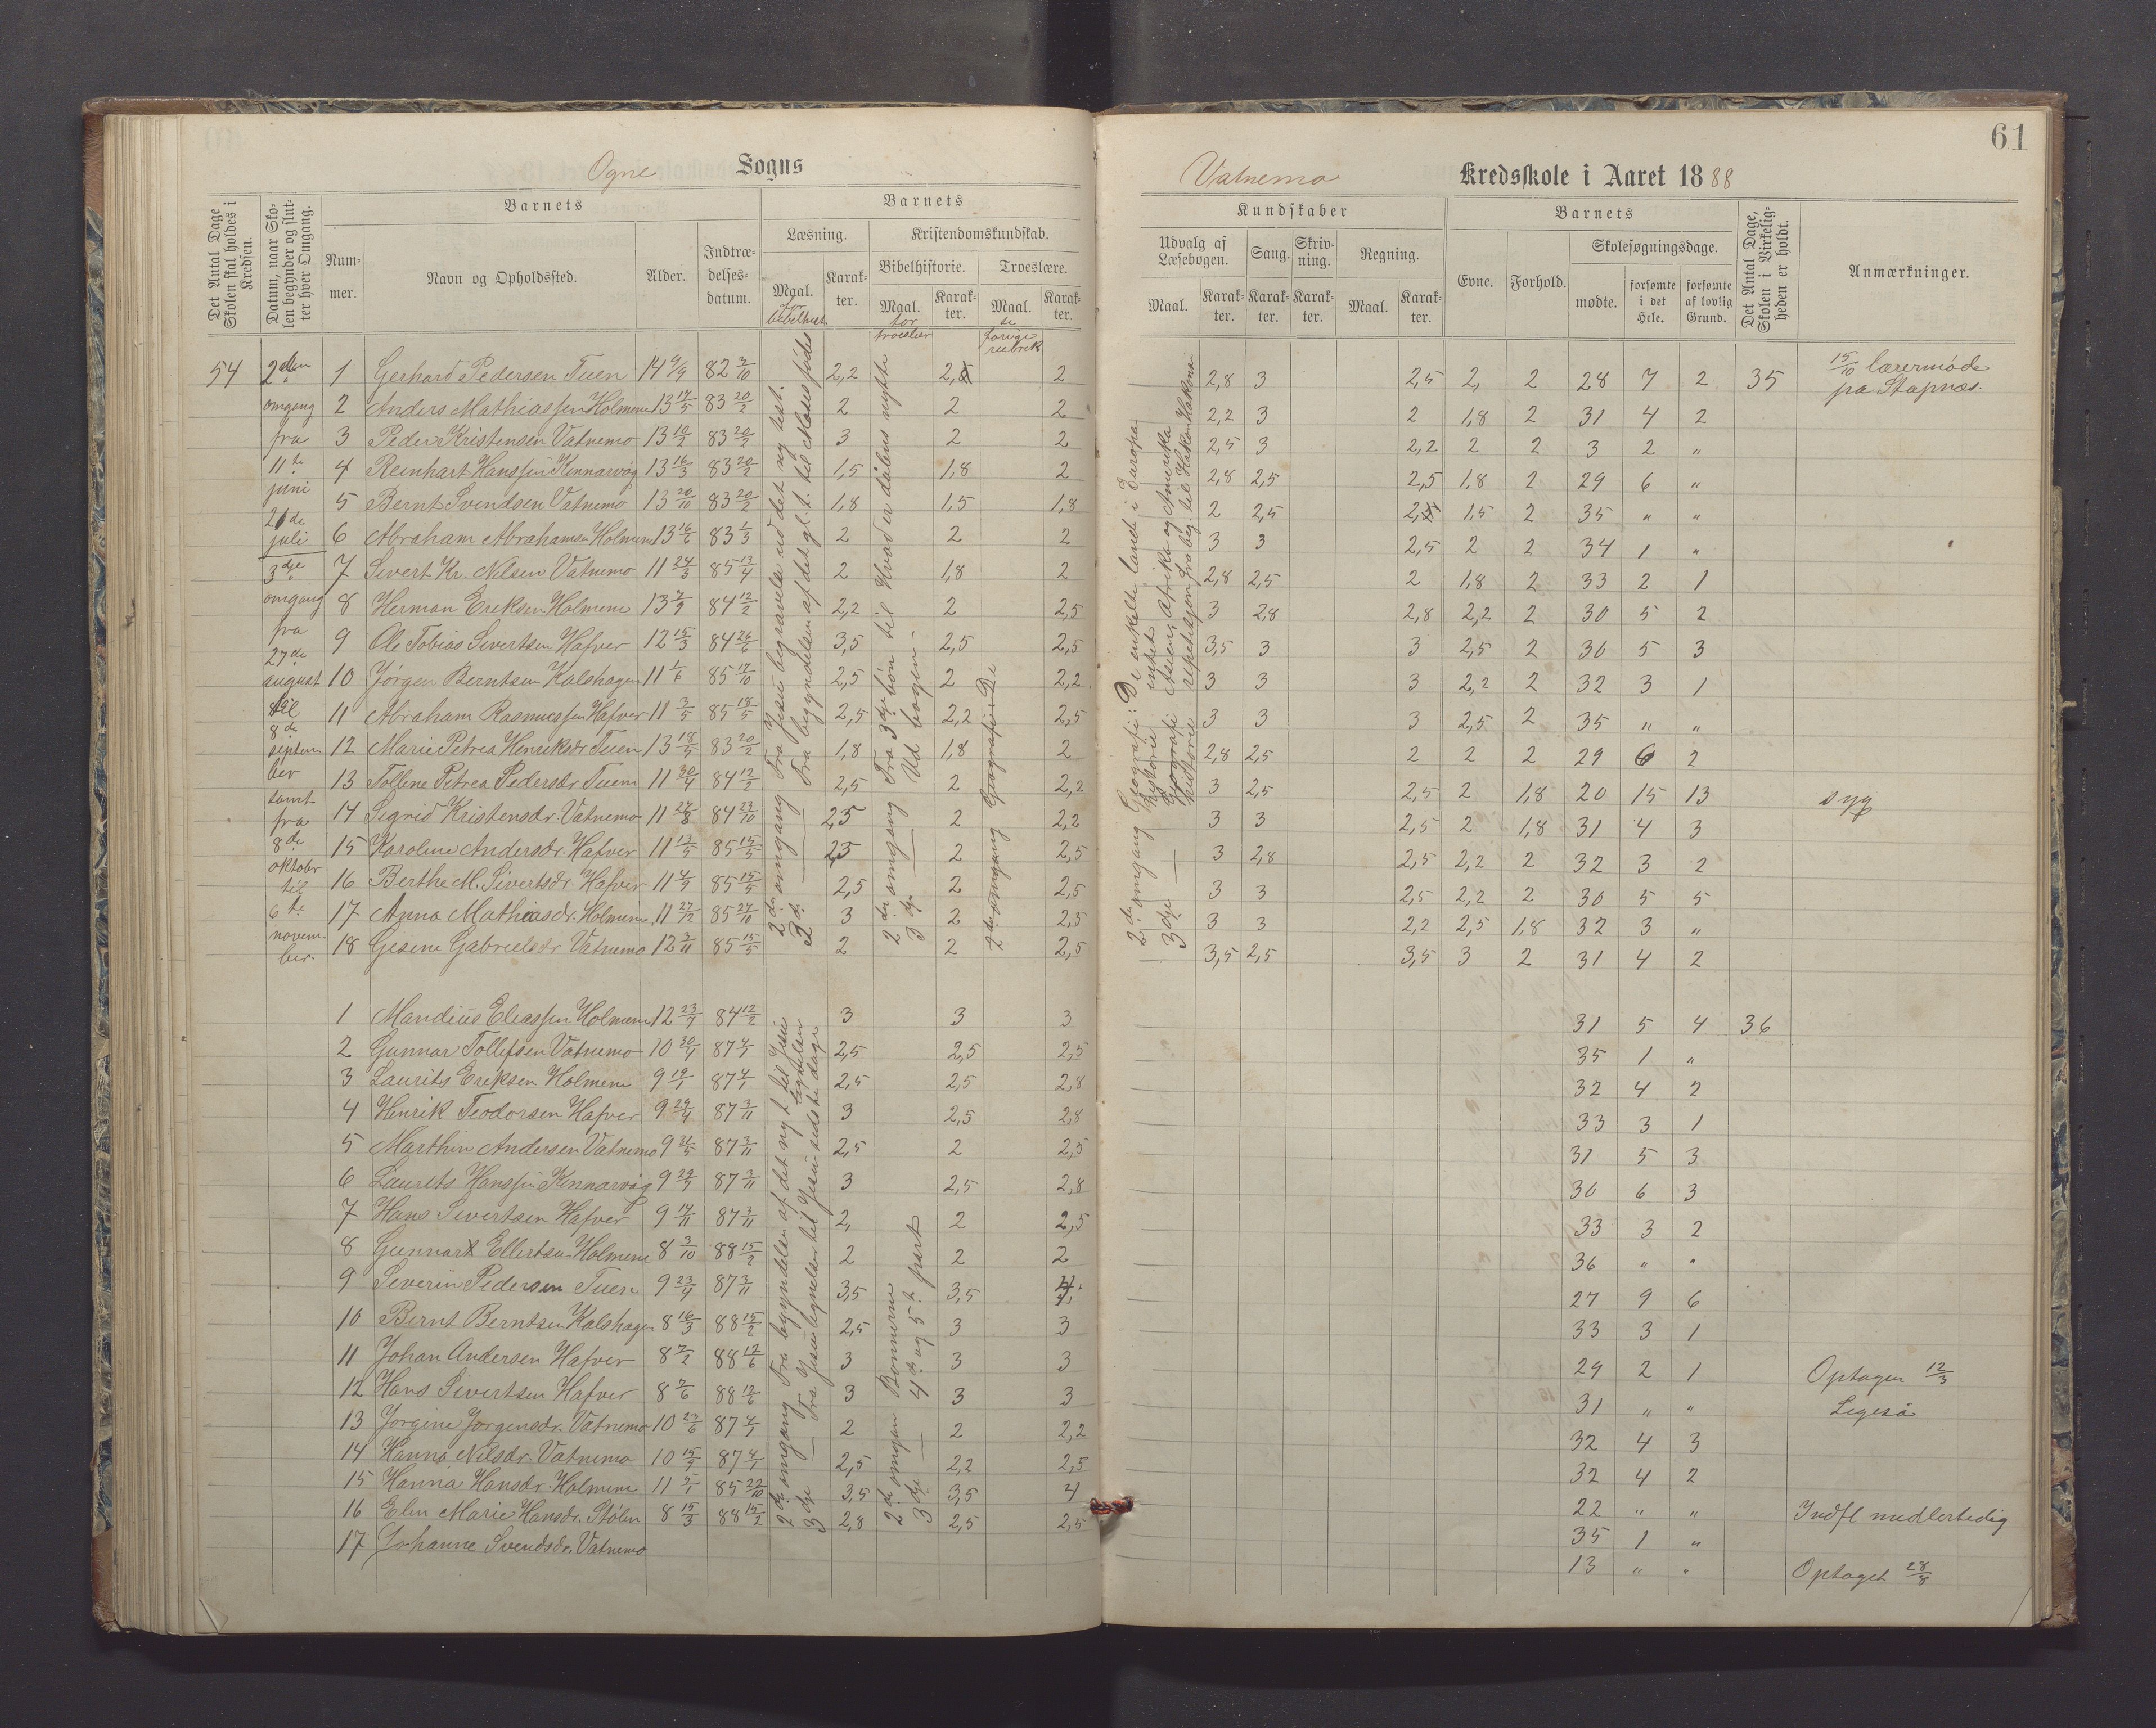 61
Ogne Sogns
Vatnemo Kredsskole i Aaret 1888
Det Antal Dage Skolen skal holdes i Kredsen.
Datum, naar Skolen begynder og slutter hver Omgang.
Barnets
Nummer.
Navn og Opholdssted.
Alder.
Indtrædelses-datum.
Barnets
Læsning.
Maal. for bibelhist.
Karakter.
Kristendomskundskab.
Bibelhistorie.
Maal. for troeslær
Karakter.
Troeslære.
Maal. se forrige rubrik
Karakter.
Kundskaber
Udvalg af Læsebogen.
Maal.
Karakter.
Sang.
Karakter.
Skrivning.
Karakter.
Regning.
Maal.
Karakter.
Barnets
Evne.
Forhold.
Skolesøgningsdage.
mødte.
forsømte i det Hele.
forsømte af lovlig Grund.
Det Antal Dage, Skolen i Virkeligheden er holdt.
Anmærkninger.
54
2den omgang fra 11te juni 21de juli
3dje omgang fra 27de august til 8de september samt fra 8de oktober til 6te november.
1 Gerhard Pedersen Tuen 14 9/9 82 3/10 2,2 2, 2 2,8 3 2,5 2, 2 28 7 2 35 15/10 lærermøde pa Stapnæs.
2 Anders Mathiassen Holmene 13 17/5 83 20/2 2 2 2 2,2 3 2 1,8 2 31 4 2
3 Peder Kristensen Vatnemo 13 10/2 83 20/2 3 2 2 2,5 3 2,2 2 2 3 2 "
4 Reinhart Hanssen Kinnarvåg 13 16/3 83 20/2 1,5 1,8 2 2,8 2,5 2,5 1,8 2 29 6 "
5 Bernt Svendsen Vatnemo 13 20/10 83 20/2 1,8 1,5 1,8 2 2,5 2, 1,5 2 35 " "
6 Abraham Abrahamsen Holmene 13 16/6 83 1/3 2 2 2 3 3 2,5 2 2 34 1 "
7 Sivert Kr. Nilsen Vatnemo 11 24/3 85 13/4 2 1,8 2 2,8 2,5 2 1,8 2 33 2 1
8 Herman Eriksen Holmene 13 7/9 84 12/2 2,2 2 2,5 3 2,8 2,8 2,2 2 30 5 2
9 Ole Tobias Sivertsen Hafver 12 15/3 84 26/6 3,5 2,5 2,5 3,5 3 3 2,5 2 30 5 3
10 Jørgen Berntsen Kalshagen 11 1/6 85 17/10 2,5 2 2,2 3 3 3 2,2 2 32 3 1
11 Abraham Rasmussen Hafver 11 3/5 85 18/5 2,5 2,2 2,5 3 3 3 2,5 2 35 " "
12 Marie Petrea Henriksdr Tuen 13 18/5 83 20/2 1,8 1,8 2 2,8 2,5 2 2 2 29 6 2
13 Tolline Petrea Pedersdr Tuen 11 30/4 84 12/2 2,5 2 2,2 3 2,5 2,5 2 1,8 20 15 13 syg
14 Sigrid Kristensdr. Vatnemo 11 27/8 84 23/10 2,5 2 2,2 3 3 2,5 2 1,8 31 4 3
15 Karoline Andersdr. Hafver 11 13/5 85 15/5 2,5 2 2,5 3 2,8 2,5 2,2 2 32 3 2
16 Berthe M. Sivertsdr. Hafver 11 4/9 85 15/5 2,5 2 2,5 3 3 2,5 2,2 2 30 5 5
17 Anna Mathiasdr. Holmene 11 27/12 85 27/10 3 2 2,5 3 3 2,2 2,5 1,8 32 3 "
18 Gesine Gabrielsdr Vatnemo 12 3/11 85 15/5 2 2 2,5 3,5 2,5 3,5 3 2 31 4 2
2de omgang Fra Jesu begravelse ud det ny test.
Fra begyndelsen af det gl. t. til Moses føds
2de omgang Fra 3dje bøn til Hvad er dåbens nytte
3dje — Ud bogen.
2de omgang Geografi: De
2de omgang Geografi: De enkelte lande i Europa.
historie intet
3dje — Geografi Asien, Afrika og Amerika
historie repetisjon fra beg. til Håkon Håkons.
1 Mandius Eliassen Holmene 12 23/7 84 12/2 3 3 3 31 5 4 36
2 Gunnar Tollefsen Vatnemo 10 30/4 87 4/1 2,5 2,5 2,5 35 1 "
3 Laurits Eriksen Holmene 9 19/1 87 4/1 2,5 2,5 2,8 32 4 2
4 Henrik Teodorsen Hafver 9 29/4 87 3/11 3 2,5 2,8 33 3 1
5 Marthin Andersen Vatnemo 9 31/5 87 3/11 2,5 2 2,5 31 5 3
6 Laurits Hanssen Kinnarvåg 9 29/7 87 3/11 3 2,5 2,8 30 6 3
7 Hans Sivertsen Hafver 9 14/11 87 3/11 2, 2 2,5 33 3 2
8 Gunnar Ellertsen Holmene 8 3/10 88 15/2 2 2 2 36 " "
9 Severin Pedersen Tuen 9 23/4 87 3/11 3,5 3,5 27 9 6
10 Bernt Berntsen Kalshagen 8 16/3 88 15/2 2,5 3 3 33 3 1
11 Johan Andersen Hafver 8 7/2 88 12/6 3 3 3 29 2 1 Optagen 12/3
12 Hans Sivertsen Hafver 8 7/6 88 12/6 3 3 3 31 " "
13 Jørgine Jørgensdr. Vatnemo 10 23/6 87 4/1 2 2 2,2 32 4 3
14 Hanna Nilsdr. Vatnemo 10 15/7 87 4/1 2,5 2,2 2,5 32 4 2
15 Hanna Hansdr. Holmene 11 5/1 85 22/10 3,5 3,5 4 22 " " Indfl midlertidig
16 Elen Marie Hansdr. Stølen 8 15/3 88 15/2 2,8 2,5 2,5 35 1 "
17 Johanne Svendsdr. Vatnemo 13 " " Optaget 28/8
2de omgang Fra begyndelsen af det ny t. til Jesu lignelser
3dje — Fra Jesu lignelser til Jesu sidste dage
2de omgan Bønnerne
3dje — 4de og 5te part